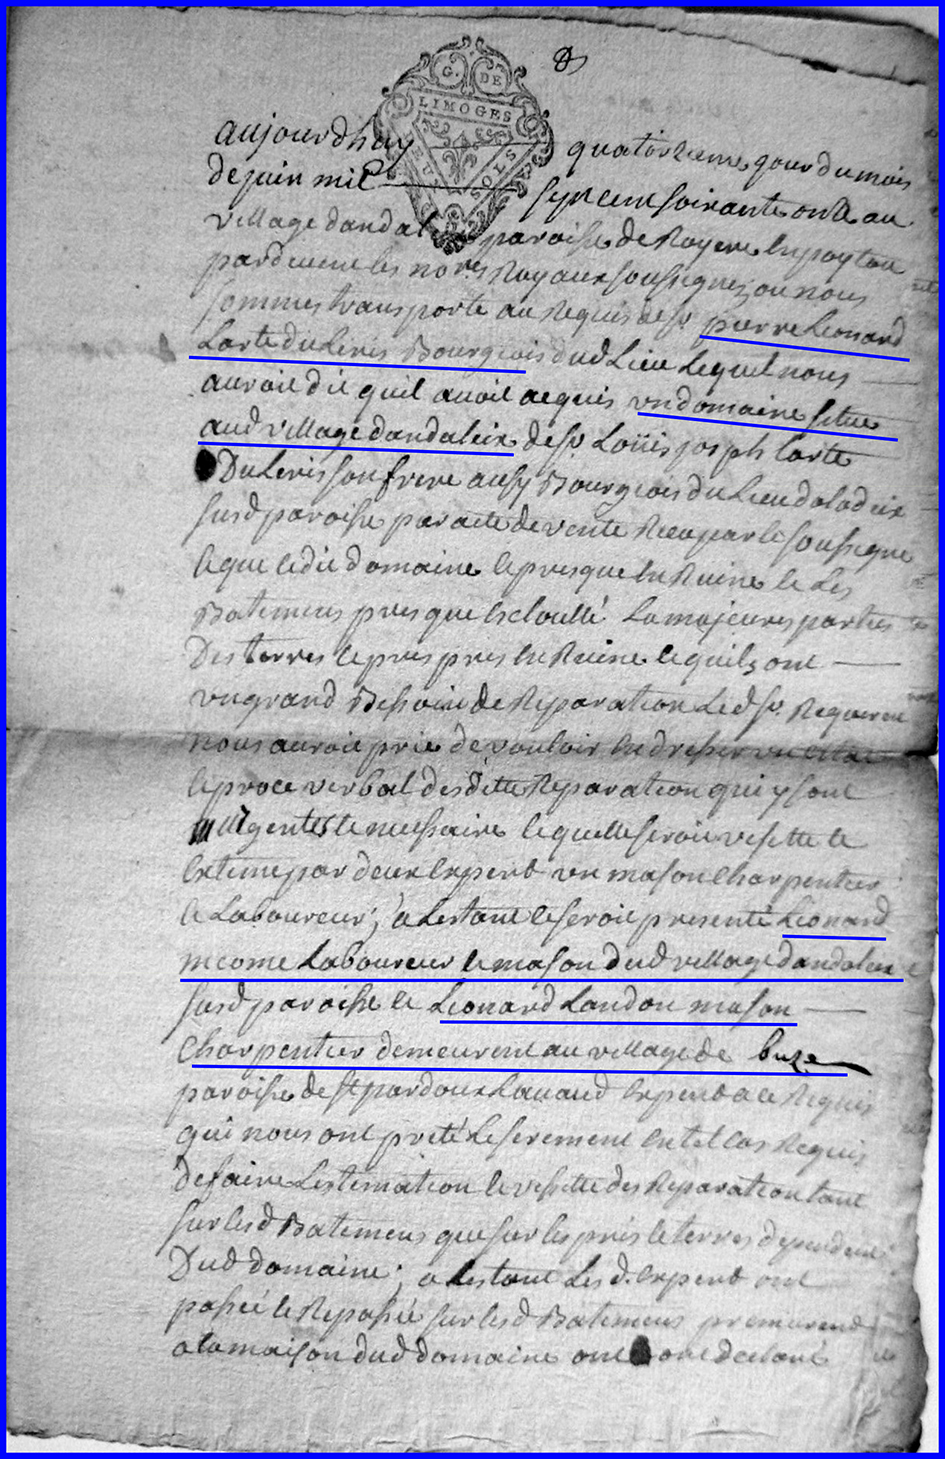 G. DE
LIMOGES
SOLS
aujourdhuy quatorzieme jour du mois
de juin mil sept cens soixante onze au
village dandal paroisse de Royere en poytou
pardevant les no.res Royaux soussignez ou nous
sommes transporte au Requis de sr. pierre Leonard
Larte du Leris Bourgeois dud Lieu Lequel nous
auroit dit quil avoit acquis un domaine situe
aud village dandaleix de sr. Loüis joseph Larte
Du Leris son frere aussy Bourgeois du Lieu
susd paroisse par acte de vente Receu par le soussigne
le que le dit domaine le presque en Ruine le Les
Batimens presque La majeures parties
Des terres le pres pres en Ruine le quils ont
un grand Besoin de Reparation Led sr. Requerent
nous auroit prie de vouloir en dresser un etat
le proce verbal desditte Reparation qui y sont
urgentes le nessaire lequelle seroit visitte le
estime par deux expert un mason charpentier
le Laboureur; a Lestant le seroit presenté Leonard
mcome Laboureur le mason dud village dandaleix
susd paroisse le Leonard Landon mason
charpentier demeurent au village de buze
paroisse de st pardoux Lavaud expert a ce Requis
qui nous ont preté le serement en tel cas Requis
de faire Lestimation le visitte des Reparation tant
sur lesd Batimens que sur les prés le terres dependent
Dud domaine; a Lestant Les d. expert ont
passé le Repassé sur lesd Batimens premierend
a la maison dud domaine ont ont declaré